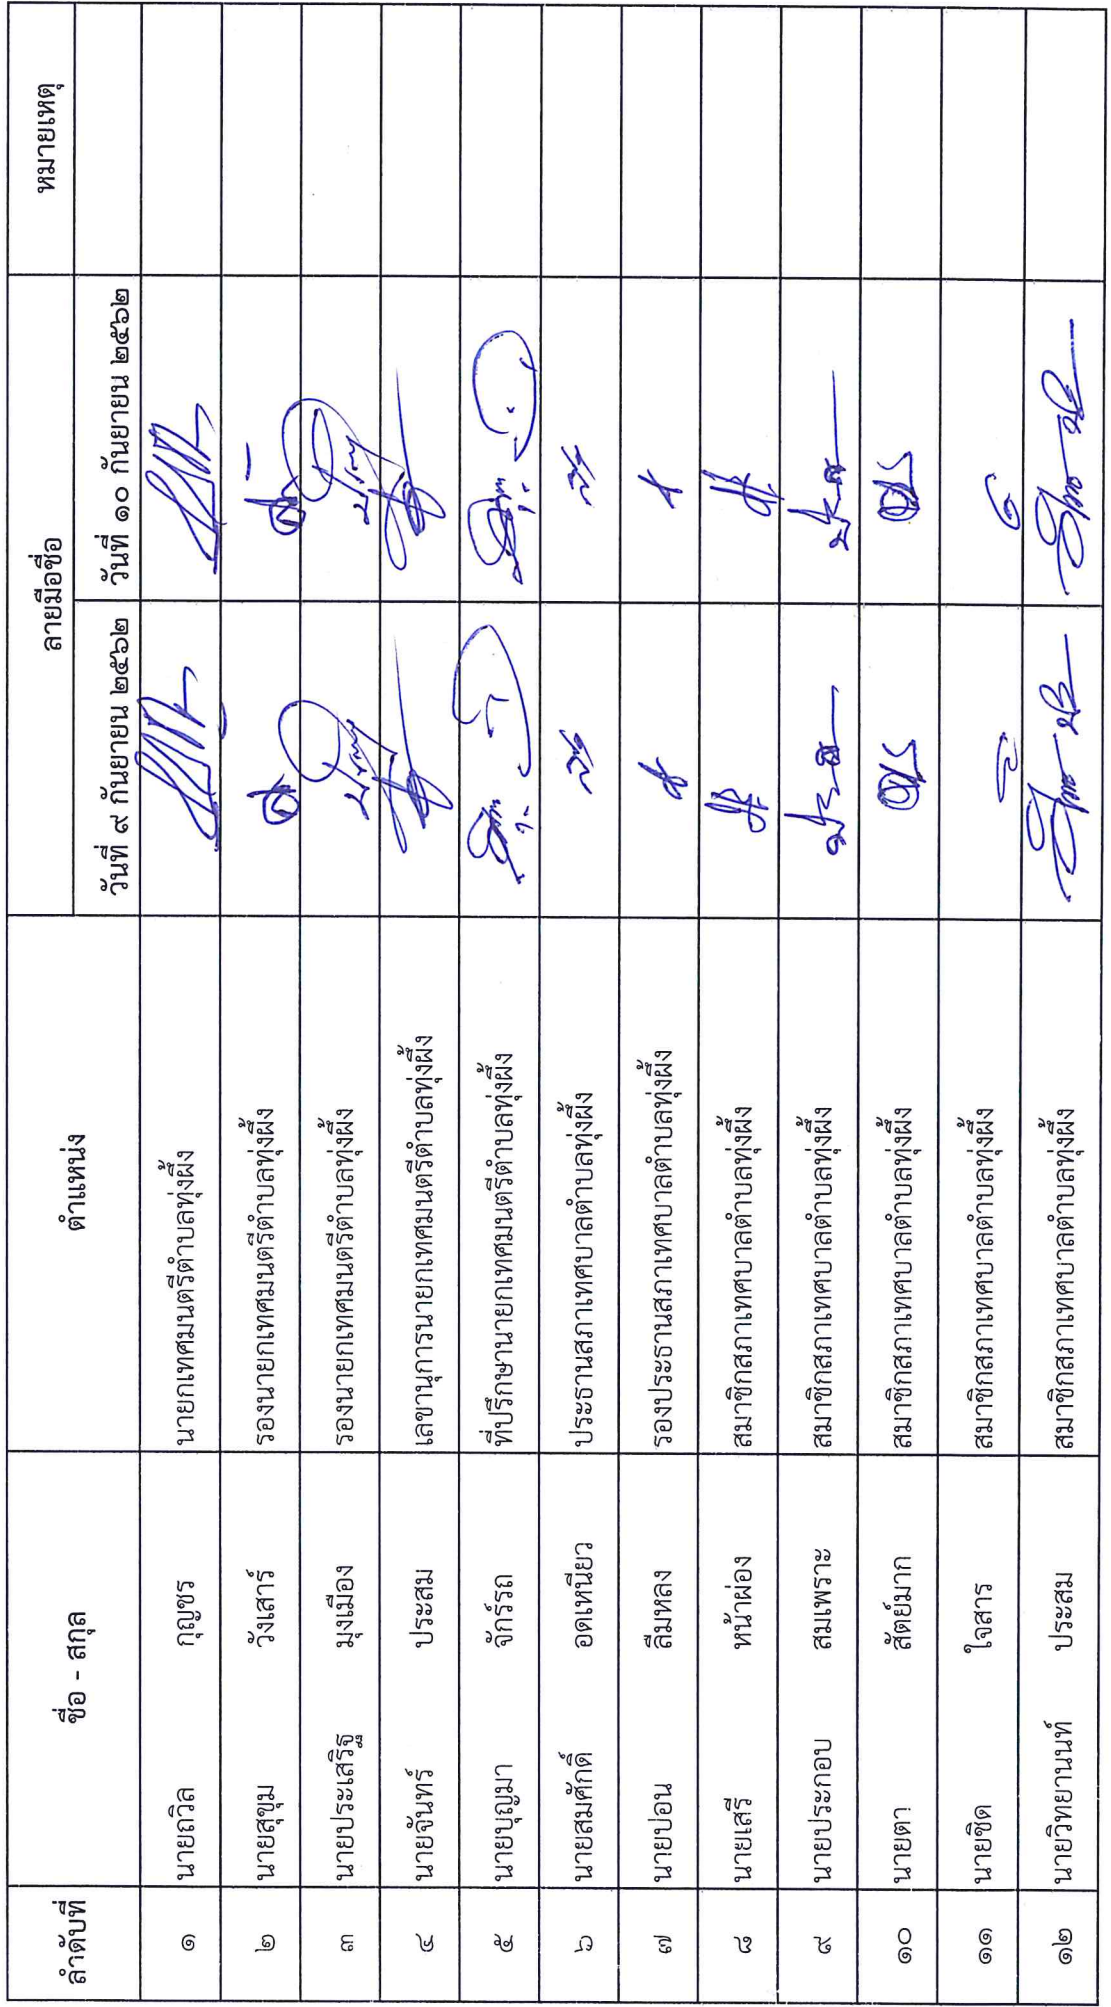 ลำดับที่ ชื่อ - สกุล ตำแหน่ง ลายมือชื่อ หมายเหตุ
วันที่ ๙ กันยายน ๒๕๖๒ วันที่ ๑๐ กันยายน ๒๕๖๒
๑ นายถวิล กุญชร นายกเทศมนตรีตำบลทุ่งผึ้ง
๒ นายสุขุม วังเสาร์ รองนายกเทศมนตรีตำบลทุ่งผึ้ง
๓ นายประเสริฐ มุงเมือง รองนายกเทศมนตรีตำบลทุ่งผึ้ง
๔ นายจันทร์ ประสม เลขานุการนายกเทศมนตรีตำบลทุ่งผึ้ง
๕ นายบุญมา จักร์รถ ที่ปรึกษานายกเทศมนตรีตำบลทุ่งผึ้ง
๖ นายสมศักดิ์ อดเหนียว ประธานสภาเทศบาลตำบลทุ่งผึ้ง
๗ นายปอน ลืมหลง รองประธานสภาเทศบาลตำบลทุ่งผึ้ง
๘ นายเสรี หน้าผ่อง สมาชิกสภาเทศบาลตำบลทุ่งผึ้ง
๙ นายประกอบ สมเพราะ สมาชิกสภาเทศบาลตำบลทุ่งผึ้ง
๑๐ นายตา สัตย์มาก สมาชิกสภาเทศบาลตำบลทุ่งผึ้ง
๑๑ นายชิด ใจสาร สมาชิกสภาเทศบาลตำบลทุ่งผึ้ง
๑๒ นายวิทยานนท์ ประสม สมาชิกสภาเทศบาลตำบลทุ่งผึ้ง